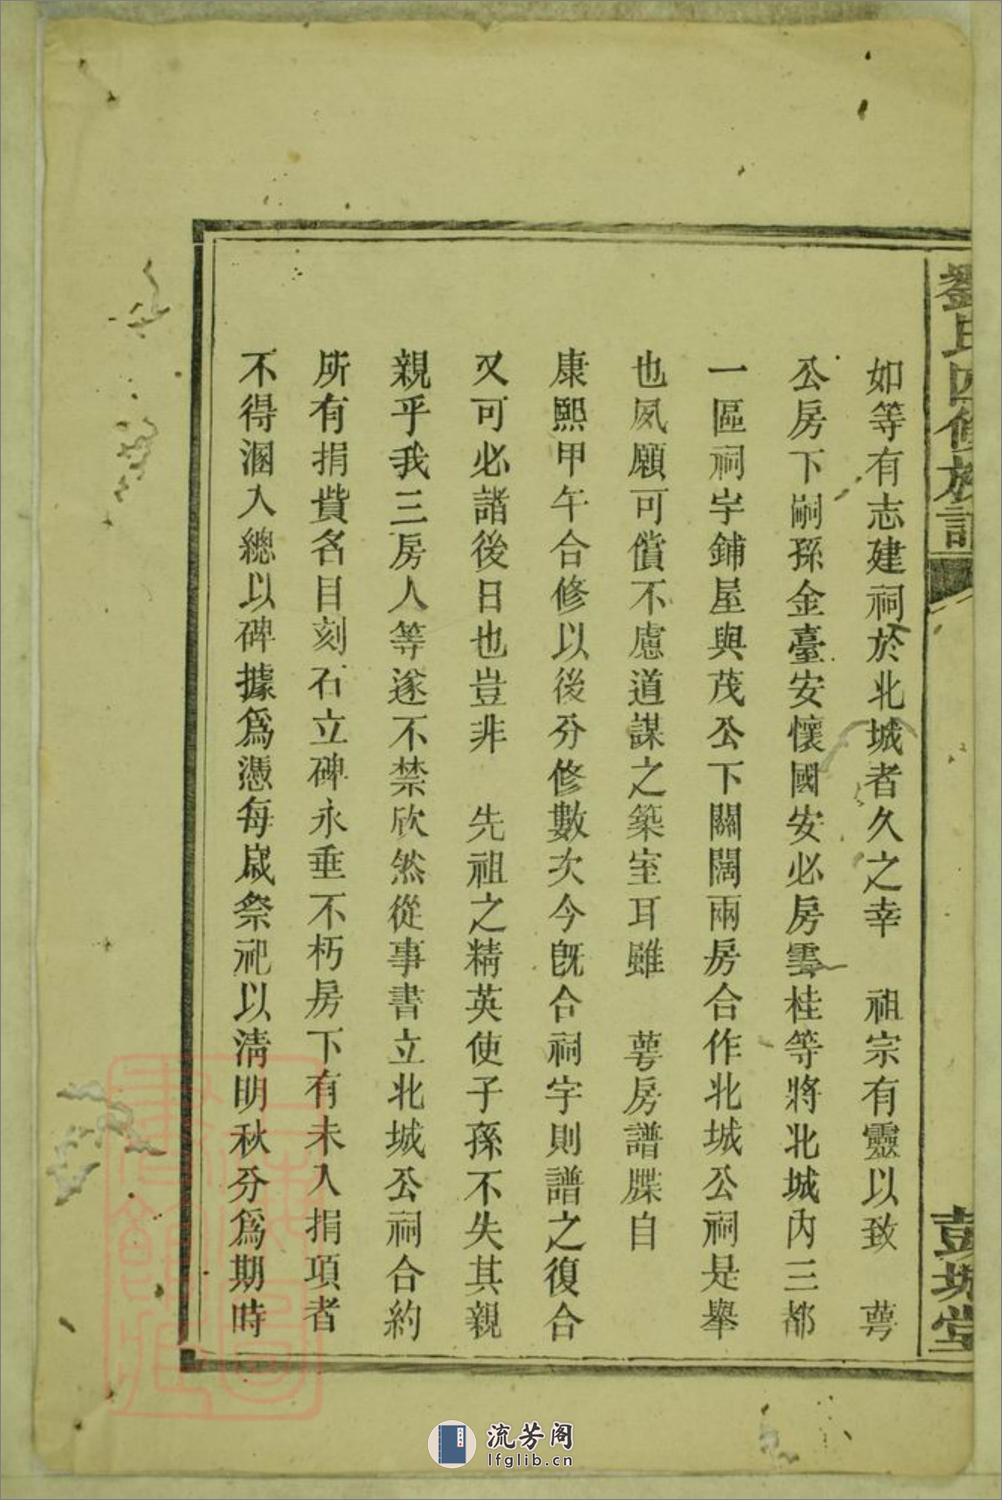 劉氏四修族譜
彭城堂
如等有志建祠於北城者久之幸　祖宗有靈以致　萼
公房下嗣孫金臺安懷國安必房雲桂等將北城內三都
一區祠宇鋪屋與茂公下關闊兩房合作北城公祠是舉
也夙願可償不慮道謀之築室耳雖　萼房譜牒自
康熙甲午合修以後分修數次今既合祠宇則譜之復合
又可必諸後日也豈非　先祖之精英使子孫不失其親
親乎我三房人等遂不禁欣然從事書立北城公祠合約
所有捐費名目刻石立碑永垂不朽房下有未入捐項者
不得溷入總以碑據爲憑每歲祭祀以清明秋分爲期時
流芳阁
lfglib.cn